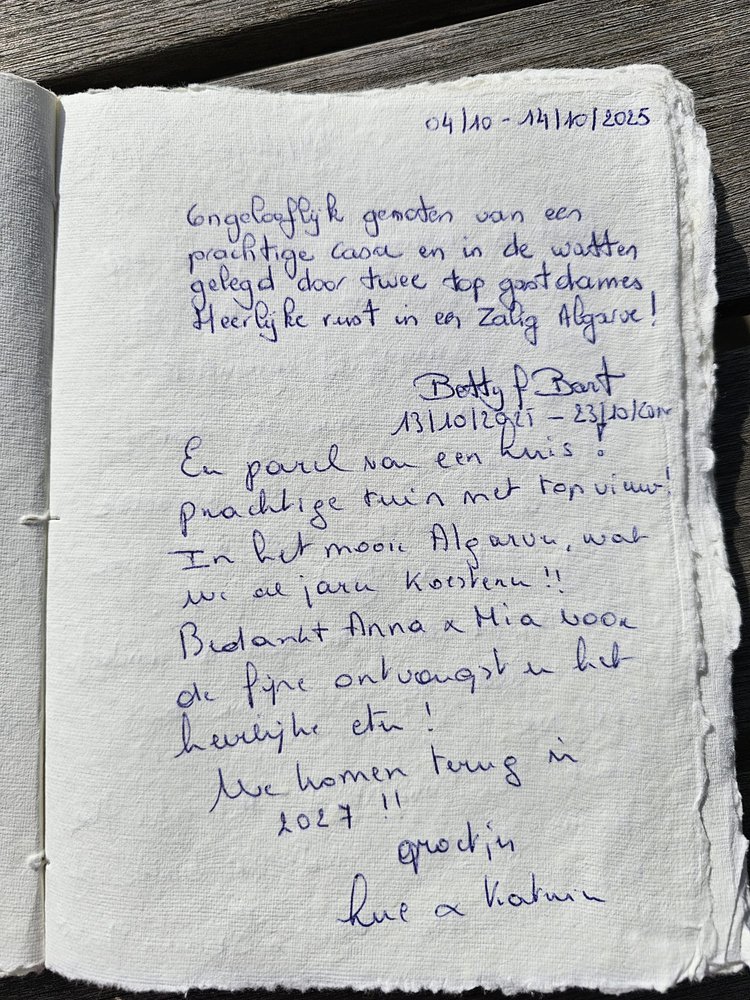 04/10 - 14/10/2025
Ongelooflijk genoten van een
prachtige casa en in de watten
gelegd door twee top gastdames
Heerlijke rust in een Zalig Algarve!
Betty & Bart
13/10/2025 - 23/10/
Een parel van een huis!
prachtige tuin met top vieuw!
In het mooie Algarve, wat
we al jaren koesteren!!
Bedankt Anna & Mia voor
de fijne ontvangst en het
heerlijke eten!
We komen terug in
2027 !!
groetjes
& Katrien